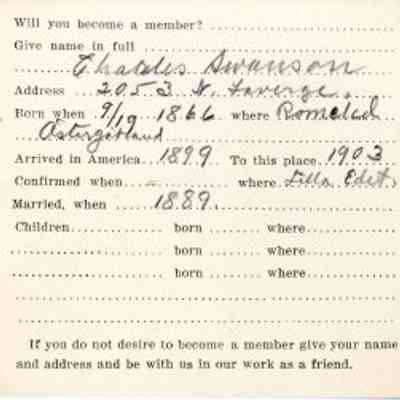 Will you become a member?
Give name in full
Charles Swanson
Address 2053 N. Laverge.
Born when 9/19 1866 where Romeled
Ostergotland
Arrived in America 1899 To this place 1903
Confirmed when where Lilla Edet.
Married, when 1889.
Children born where
born where
born where
If you do not desire to become a member give your name
and address and be with us in our work as a friend.